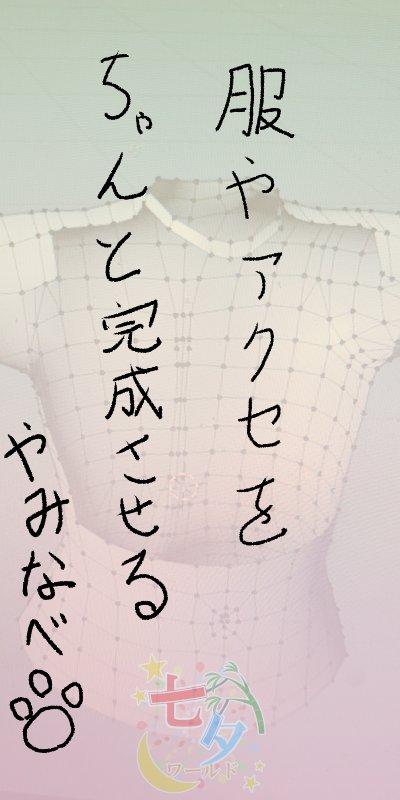 服やアクセを
ちゃんと完成させる
やみなべ
七夕
ワールド